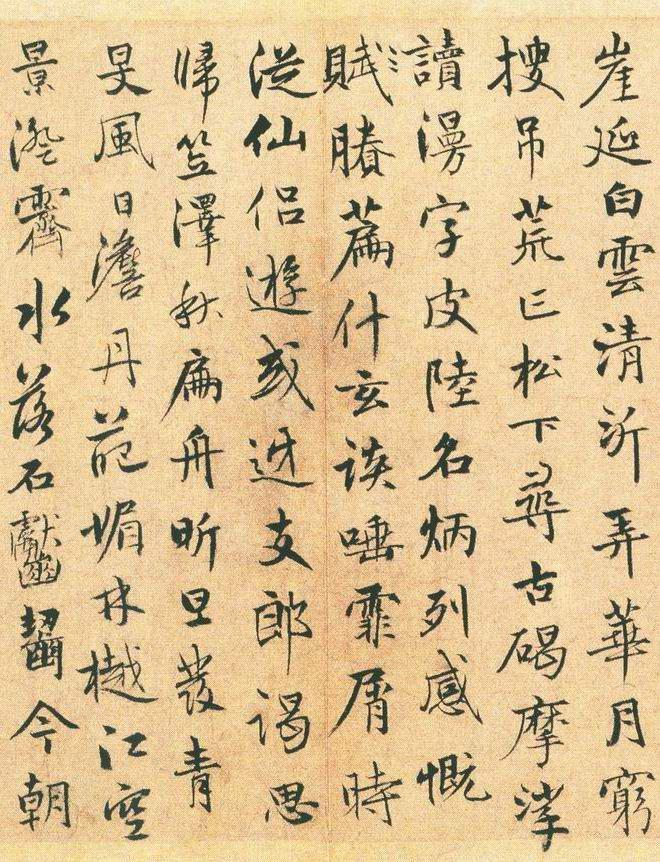 崖延白雲清泝弄華月窮
搜吊荒亡松下尋古碣摩挲
讀漫字皮陸名炳列感慨
賦賸篇什玄談唾霏屑時
從仙侶遊或迓支郎謁思
歸笠澤秋扁舟昕旦發青
旻風日澹丹葩媚林樾江空
景澄霽水落石齾齧今朝